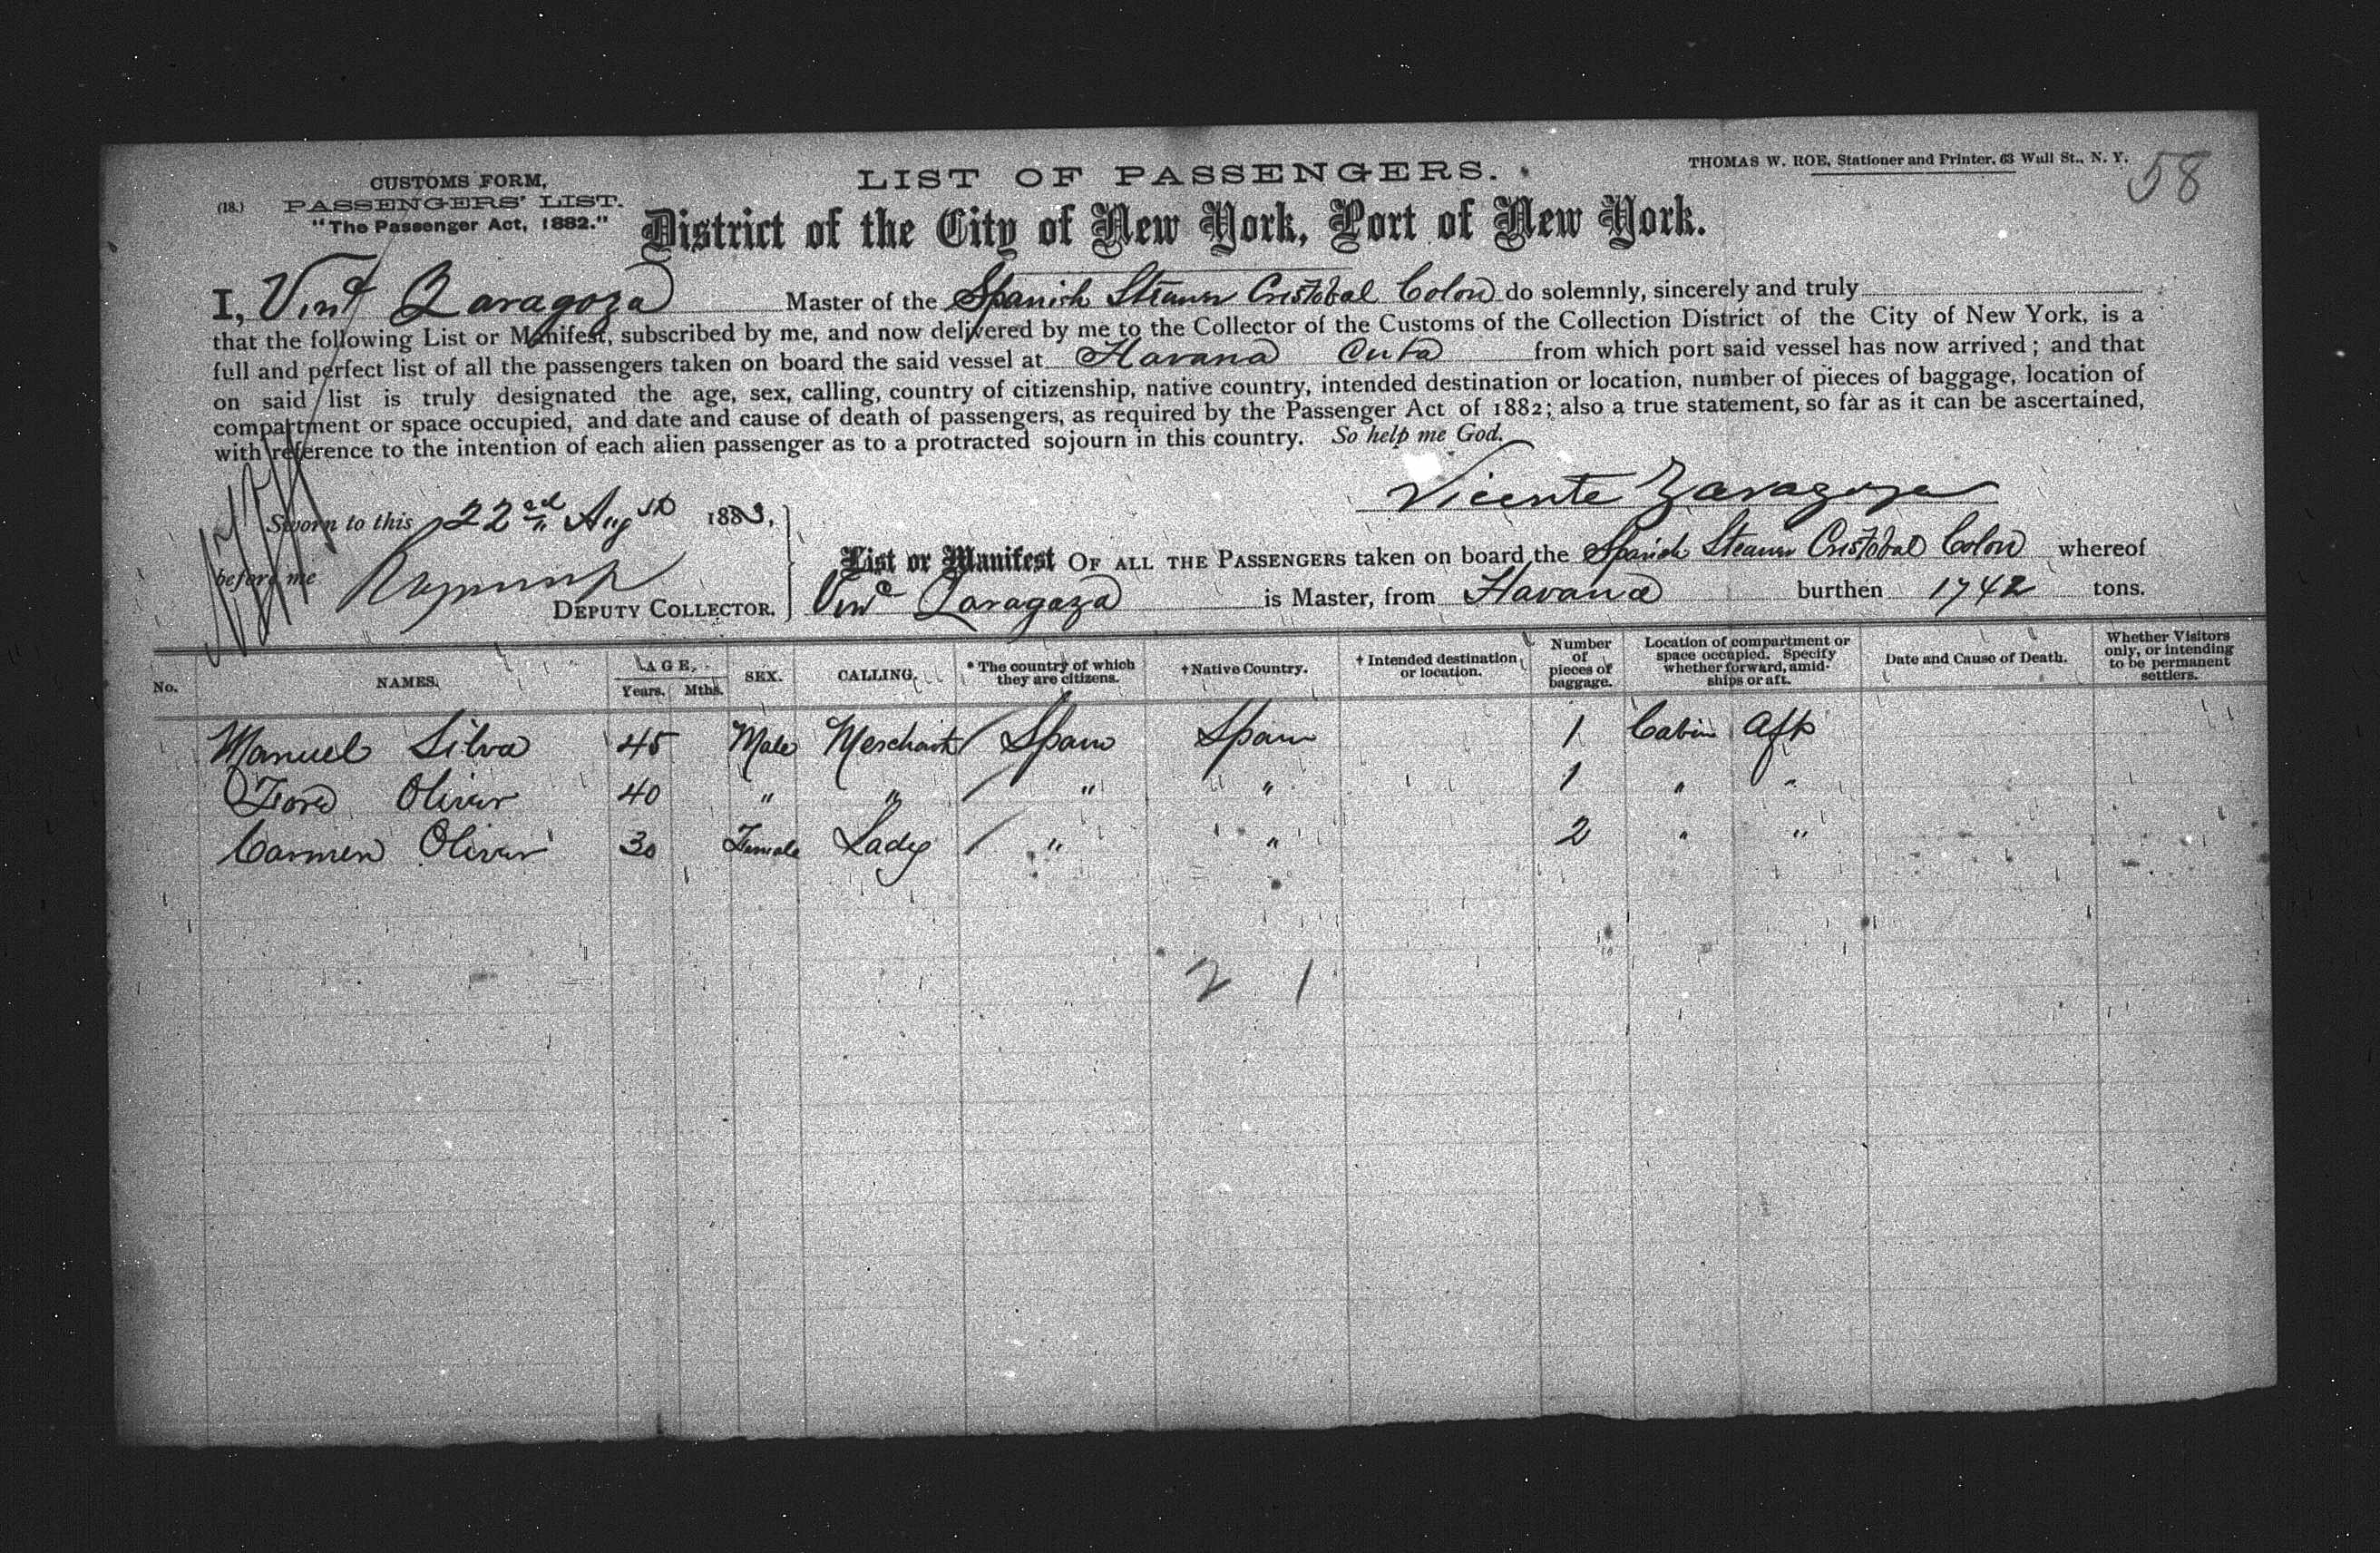 CUSTOMS FORM,
(18.) PASSENGERS' LIST.
"The Passenger Act, 1882."
LIST OF PASSENGERS.
THOMAS W. ROE, Stationer and Printer, 63 Wall St., N. Y.
58
District of the City of New York, Port of New York.
I, Zaragoza Master of the Spanish Steamr Cristobal Colon do solemnly, sincerely and truly
that the following List or Manifest, subscribed by me, and now delivered by me to the Collector of the Customs of the Collection District of the City of New York, is a
full and perfect list of all the passengers taken on board the said vessel at Havana Cuba from which port said vessel has now arrived; and that
on said list is truly designated the age, sex, calling, country of citizenship, native country, intended destination or location, number of pieces of baggage, location of
compartment or space occupied, and date and cause of death of passengers, as required by the Passenger Act of 1882; also a true statement, so far as it can be ascertained,
with reference to the intention of each alien passenger as to a protracted sojourn in this country. So help me God.
Vicente Zaragoza
Sworn to this 22nd Augst 1883,
before me
DEPUTY COLLECTOR.
List or Manifest OF ALL THE PASSENGERS taken on board the Spanish Steamr Cristobal Colon whereof
Zaragoza is Master, from Havana burthen 1742 tons.
No. NAMES. AGE. Years. Mths. SEX. CALLING. * The country of which they are citizens. † Native Country. † Intended destination or location. Number of pieces of baggage. Location of compartment or space occupied. Specify whether forward, amidships or aft. Date and Cause of Death. Whether Visitors only, or intending to be permanent settlers.
Manuel Silva 45 Male Merchant Spain Spain 1 Cabin Aft
Oliver 40 " " " " 1 " "
Carmen Oliver 30 Female Lady " " 2 " "
2 1